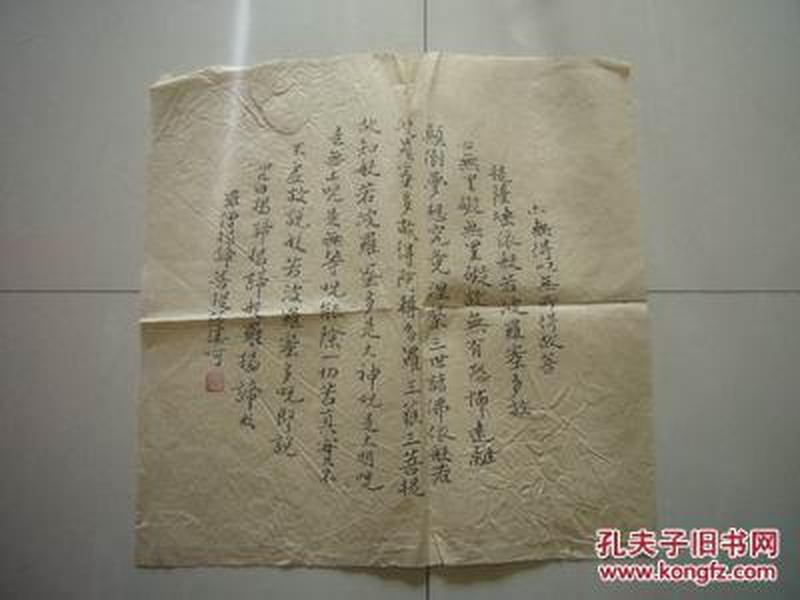 亦無得以無所得故菩
提薩埵依般若波羅蜜多故
心無罣礙無罣礙故無有恐怖遠離
顛倒夢想究竟涅槃三世諸佛依般若
波羅蜜多故得阿耨多羅三藐三菩提
故知般若波羅蜜多是大神咒是大明咒
是無上咒是無等咒能除一切苦真實不
不虛故說般若波羅蜜多咒即說
咒曰揭諦揭諦般羅揭諦般
羅僧揭諦菩提薩婆訶
孔夫子旧书网
www.kongfz.com